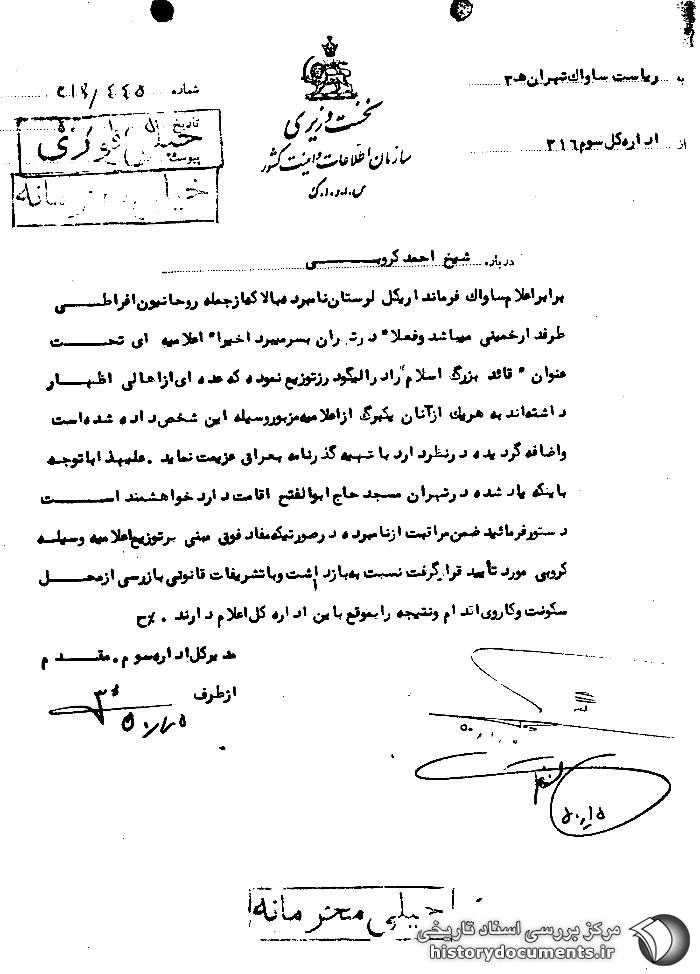 به ریاست ساواک تهران ه‍ ۳
از اداره کل سوم ۳۱۶
نخست وزیری
سازمان اطلاعات و امنیت کشور
س.ا.و.ا.ک
شماره
تاریخ
پیوست
خیلی فوری
خیلی محرمانه
درباره شیخ احمد کروبی
برابر اعلام ساواک فرمانداریکل لرستان نامبرده بالا که از جمله روحانیون افراطی
طرفدار خمینی میباشد و فعلاً در تهران بسر میبرد اخیراً اعلامیه ای تحت
عنوان " قائد بزرگ اسلام " را در الیگودرز توزیع نموده که عده ای از اهالی اظهار
داشته‌اند به هریک از آنان یکبرگ از اعلامیه مزبور وسیله این شخص داده شده است
و اضافه گردیده در نظر دارد با تهیه گذرنامه بعراق عزیمت نماید . علیهذا با توجه
باینکه یاد شده در تهران مسجد حاج ابوالفتح اقامت دارد خواهشمند است
دستور فرمائید ضمن مراقبت از نامبرده در صورتیکه مفاد فوق مبنی بر توزیع اعلامیه وسیله
کروبی مورد تأیید قرار گرفت نسبت به بازداشت و با تشریفات قانونی بازرسی از محل
سکونت و کار وی اقدام و نتیجه را بموقع باین اداره کل اعلام دارند . ح
مدیرکل اداره سوم . مقدم
از طرف
خیلی محرمانه
مرکز بررسی اسناد تاریخی
historydocuments.ir